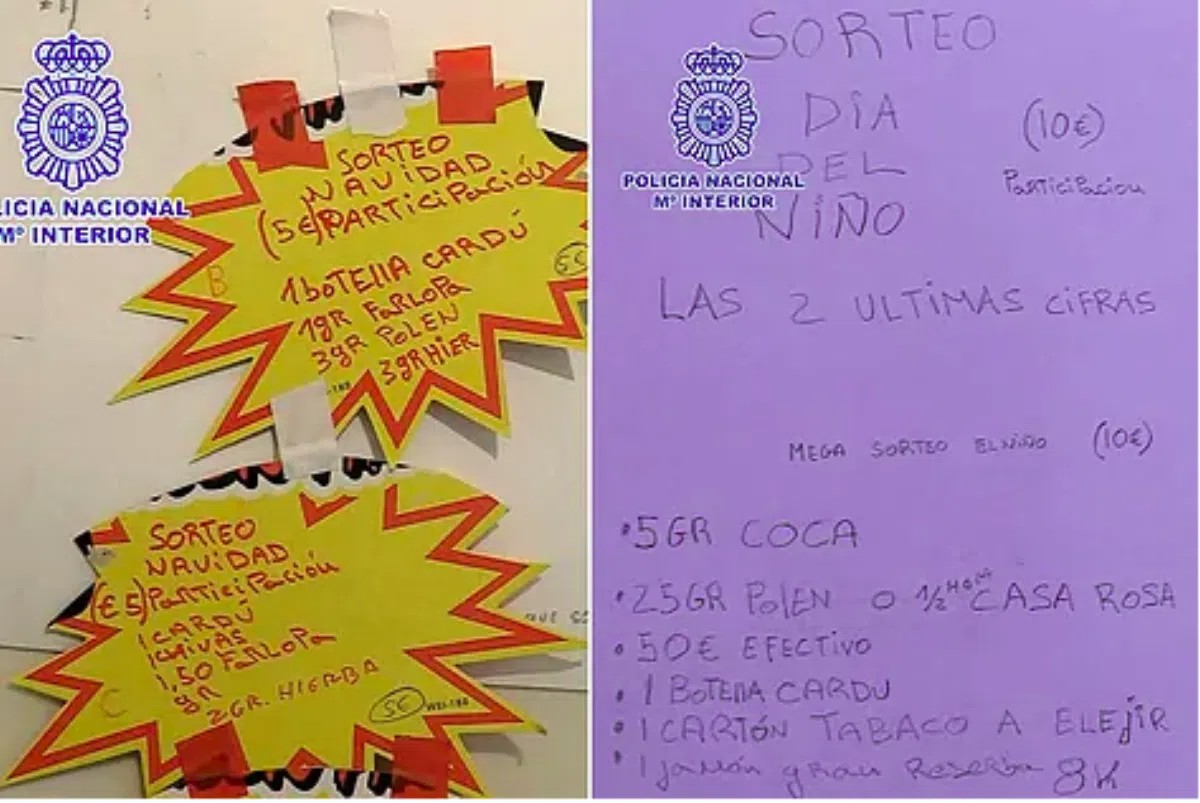 LICIA NACIONAL
Mº INTERIOR
SORTEO
NAVIDAD
(5€) PARTICIPACIÓN
B
5€
1 BOTELLA CARDÚ
1gR FARLOPA
3gR POLEN
3gR HIER
SORTEO
NAVIDAD
(€ 5) PARTICIPACIÓN
1 CARDÚ
1 CHIVAS
1,50 FARLOPA
gR
2 GR. HIERBA
C
5€
SORTEO
DIA
DEL
NIÑO
(10€)
PARTICIPACION
POLICIA NACIONAL
Mº INTERIOR
LAS 2 ULTIMAS CIFRAS
MEGA SORTEO EL NIÑO (10€)
• 5 GR COCA
• 25GR POLEN O 1/2 CASA ROSA
• 50€ EFECTIVO
• 1 BOTELLA CARDU
• 1 CARTÓN TABACO A ELEJIR
• 1 jamón gran Reserva 8K